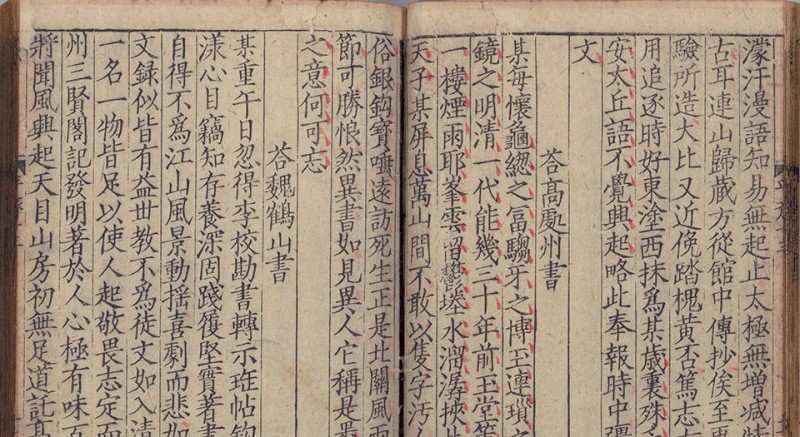 濛汗漫語知易無起止太極無增減特
古耳連山歸蔵方從館中傳抄俟至
驗所造大比又近俛踏槐黄否篤志
用追逐時好東塗西抹爲某歳裏殊
安太丘語不覺興起略此奉報時中
文
荅髙處州書
某每懷龜緫之畐騶牙之博至連瑣之
鏡之明清一代能幾三十年前玉堂
一樓煙雨耶峯雲畱鬱墪水溜潺挾
天子某屏息萬山間不敢以隻字汚
俗銀鈎寳唾遠訪死生正是北關風雨
節可勝悵然異書如見異人它稱是
之意何可忘
荅魏鶴山書
某重午日忽得李校勘書轉示珁帖鈎
漾心目竊知存養深固踐履堅實著書
自得不爲江山風景動揺喜劇而悲如
文録似皆有益丗教不爲徒文如入清
一名一物皆足以使人起敬畏志定而
州三賢閣記發明著於人心極有味
將聞風興起天目山房初無足道託髙